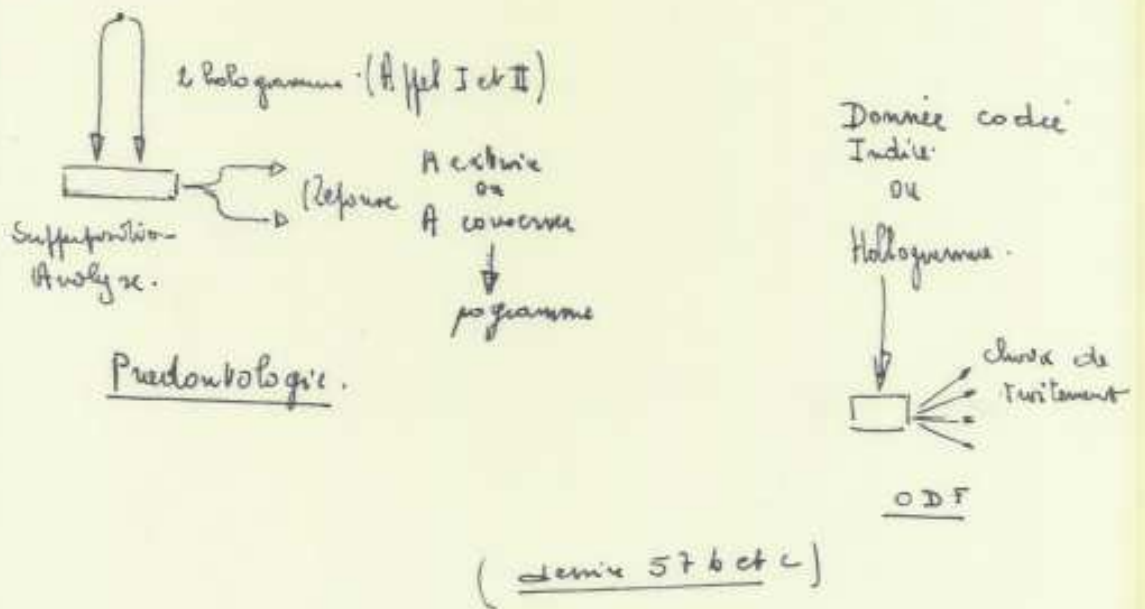 2 hologramme. (Appel I et II)
Supperposition
Analyse.
Réponse
A extraire
ou
A conserver
programme
Paredontologie.
Donnée codée
Indice.
ou
Hologramme.
choix de
traitement
ODF
(dessin 57 b et c)